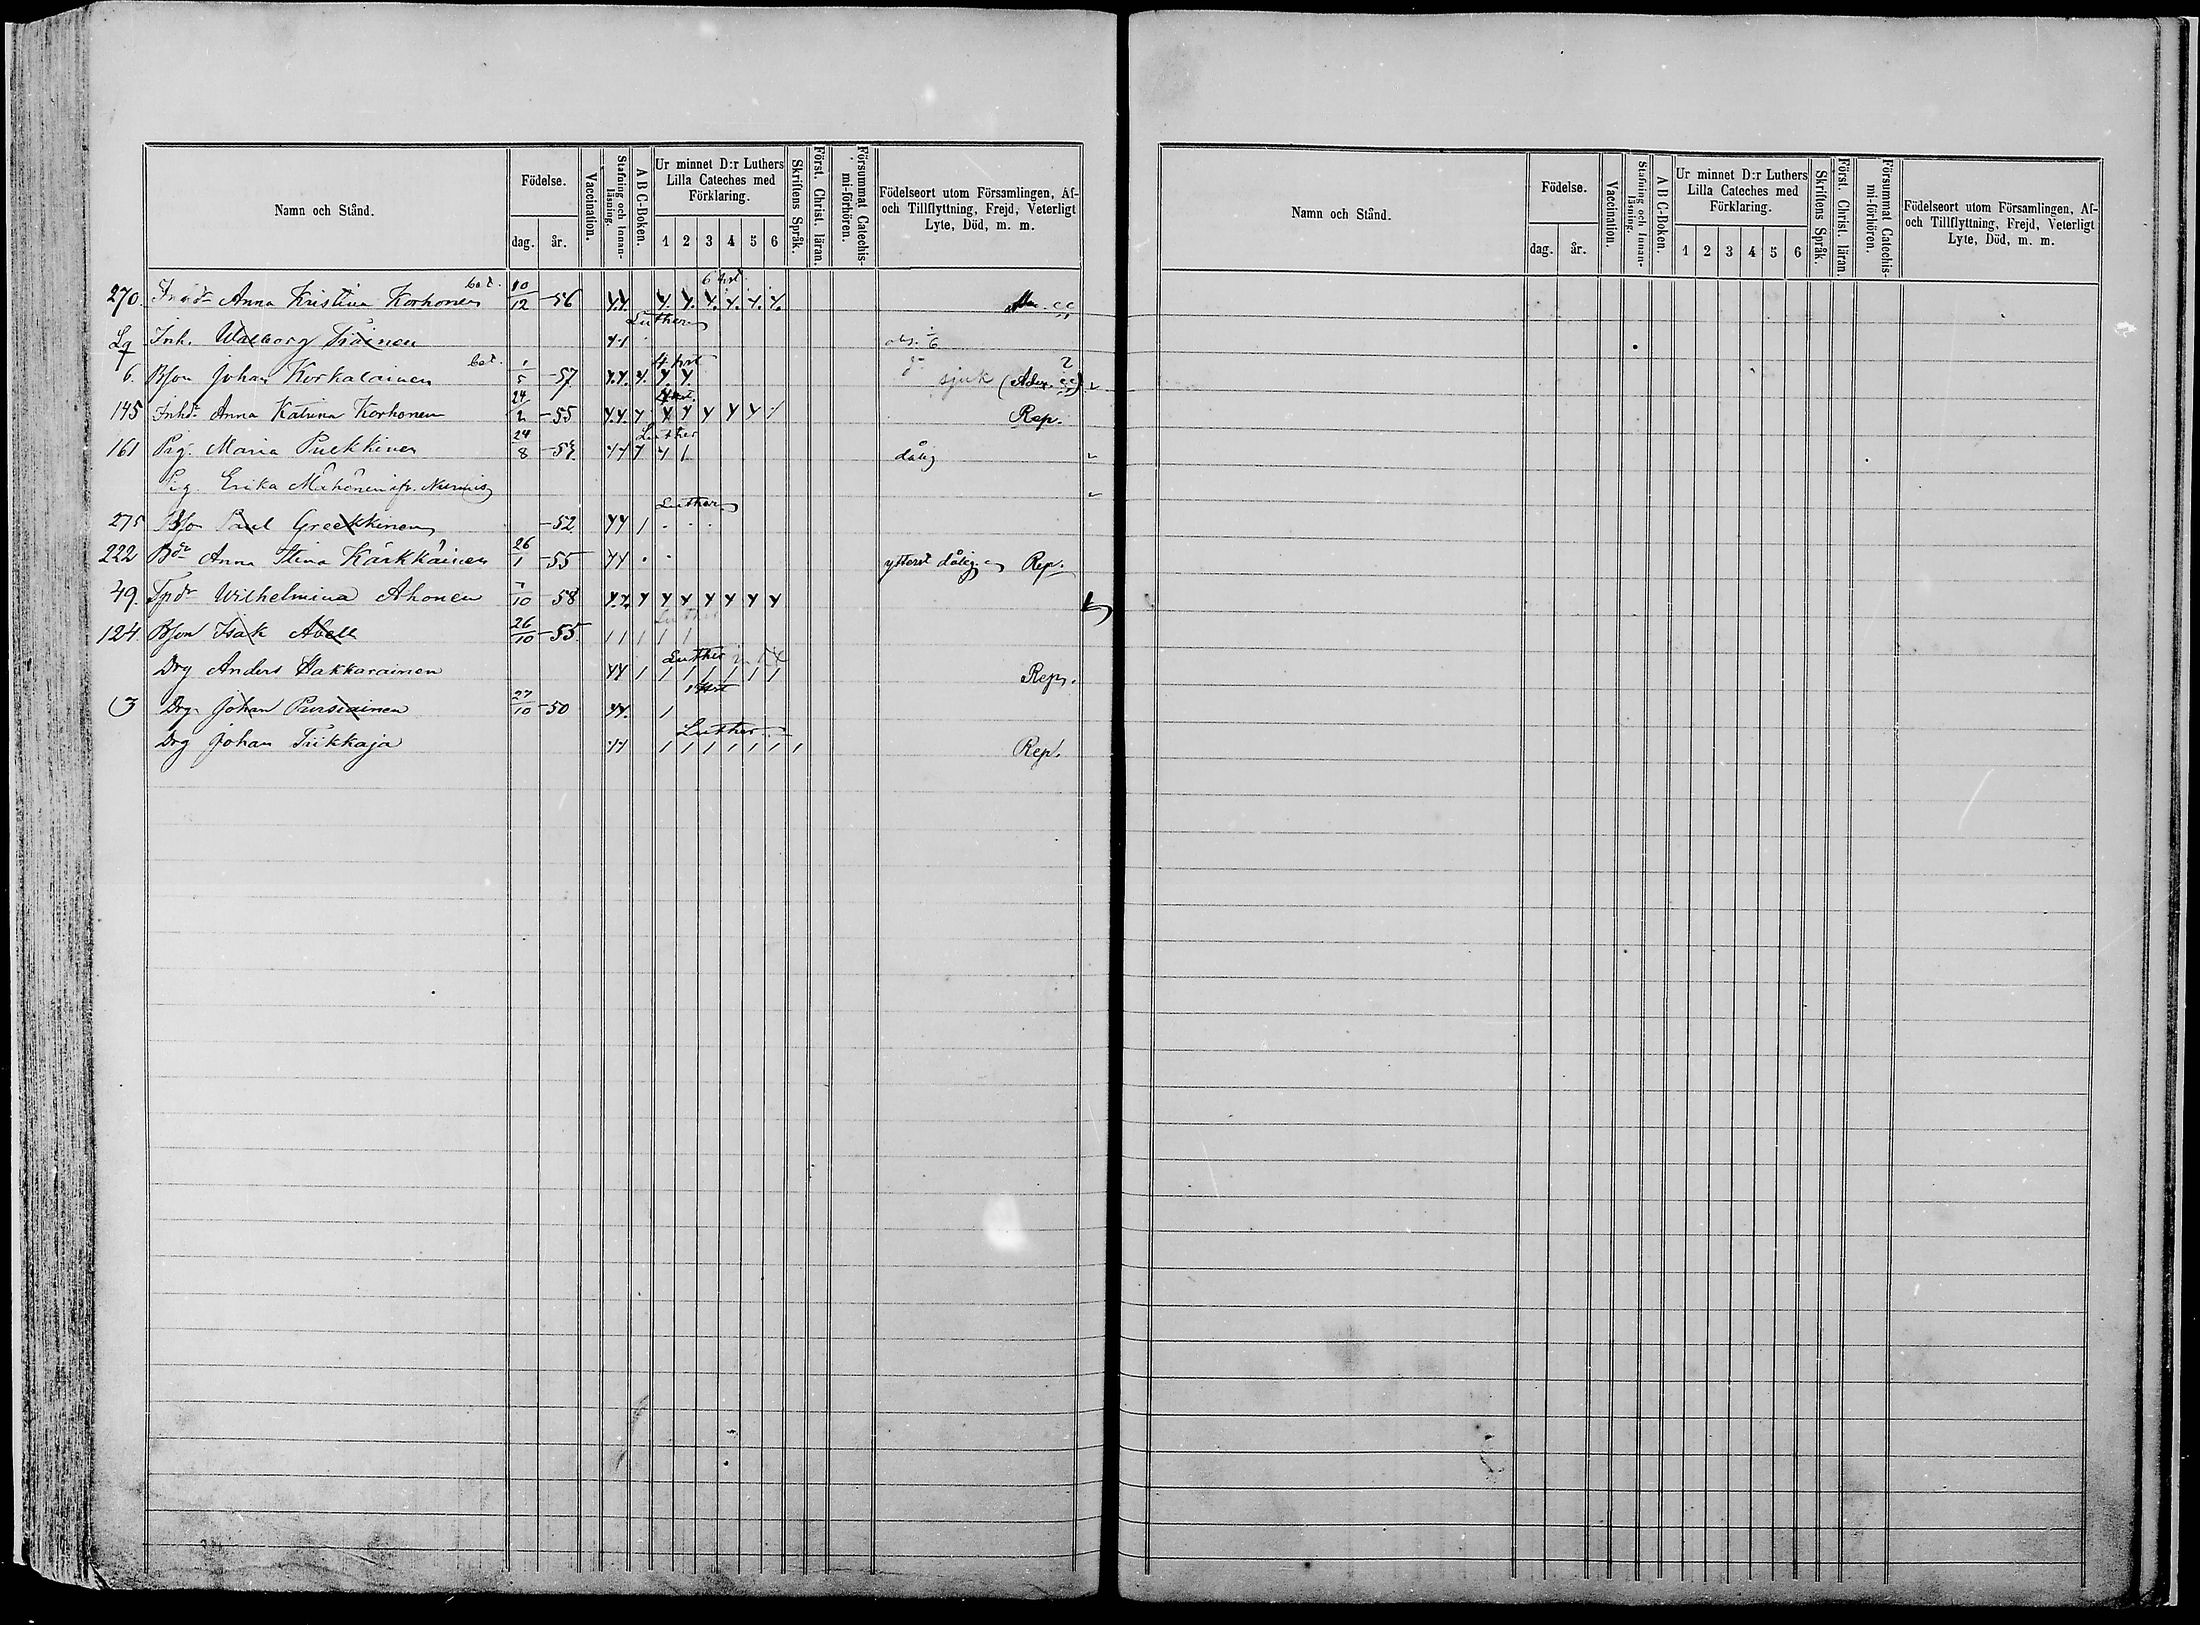 Namn och Stånd. Födelse. dag. år. Vaccination. Stafning och Innan-läsning. A B C-Boken. Ur minnet D:r Luthers Lilla Cateches med Förklaring. 1 2 3 4 5 6 Skriftens Språk. Först. Christ. läran. Försummat Catechis-mi-förhören. Födelseort utom Församlingen, Af- och Tillflyttning, Frejd, Veterligt Lyte, Död, m. m.
270. Inhdr Anna Kristina Korhonen 10/12 -56
Inh. Walborg Luther
6. Bson Johan Korkalainen 1/5 -57 sjuk
145 Inhdr Anna Katrina Korhonen 24/2 -55 Rep.
161 Pig. Maria Pulkkinen 24/8 -57 Luther dålig
Pig. Erika Mähönen
275 Bson Paul -52 Luther
222 Bdr Anna Stina Kärkkäinen 26/1 -55 ytterst dålig Rep.
49. Tpdr Wilhelmina Ahonen 7/10 -58
124. Bson Isak Abell 26/10 -55 Luther
Drg Anders Hakkarainen Luther Rep.
Drg. Johan Pursiainen 27/10 -50
Drg Johan Tiikkaja Luther Rep.
Namn och Stånd. Födelse. dag. år. Vaccination. Stafning och Innan-läsning. A B C-Boken. Ur minnet D:r Luthers Lilla Cateches med Förklaring. 1 2 3 4 5 6 Skriftens Språk. Först. Christ. läran. Försummat Catechis-mi-förhören. Födelseort utom Församlingen, Af- och Tillflyttning, Frejd, Veterligt Lyte, Död, m. m.